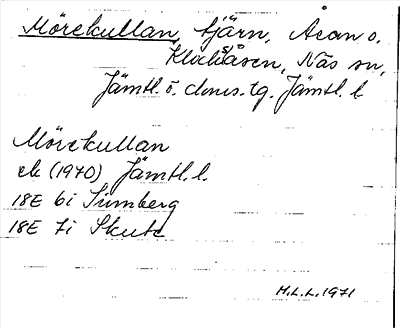 Mörekullan, tjärn, Åsan o.
Klockåsen, Näs sn,
Jämtl. ö. doms. tg. Jämtl. l
Mörekullan
ek (1970) Jämtl. l.
18E 6i Sünnberg
18E 7i Skute
H.L.L. 1971